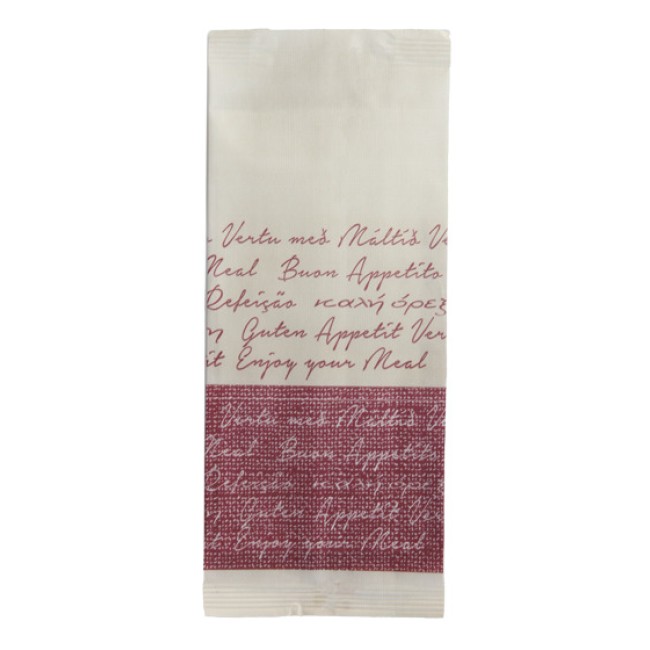 Vertu með Máltið Ve
Meal Buon Appetito
Refeição καλή όρεξ
Guten Appetit Ver
it Enjoy your Meal
Vertu með Máltið Ve
Meal Buon Appetito
Refeição καλή όρεξ
Guten Appetit Ver
it Enjoy your Meal